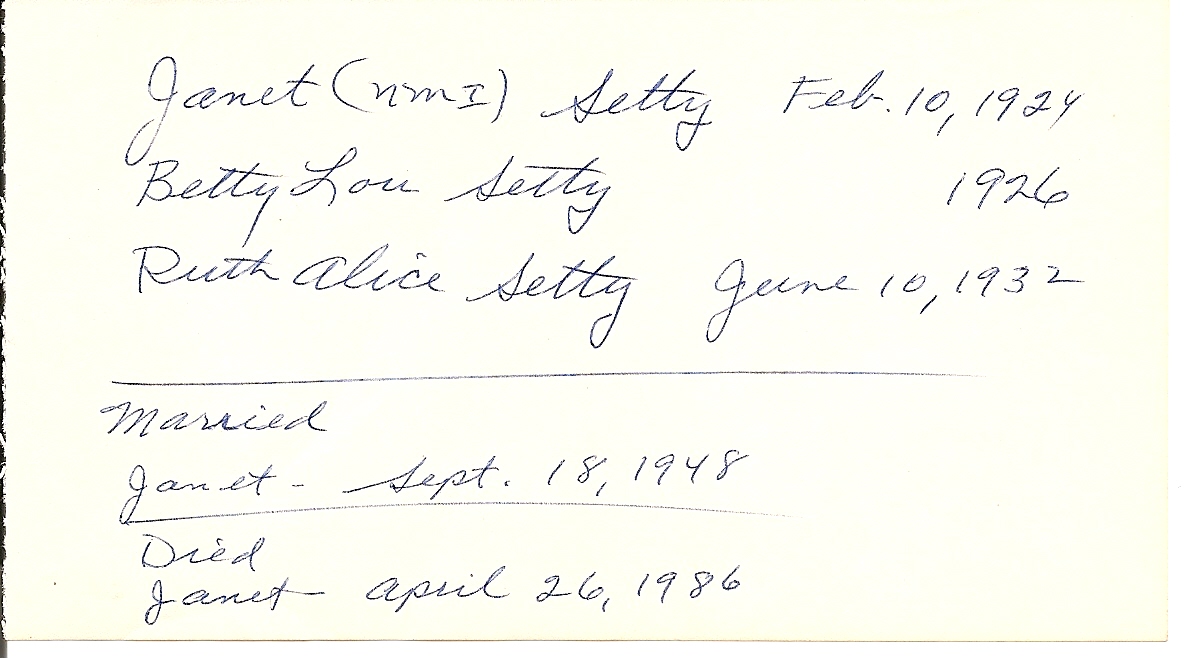 Janet (NMI) Setty Feb. 10, 1924
Betty Lou Setty 1926
Ruth Alice Setty June 10, 1932
Married
Janet - Sept. 18, 1948
Died
Janet - April 26, 1986